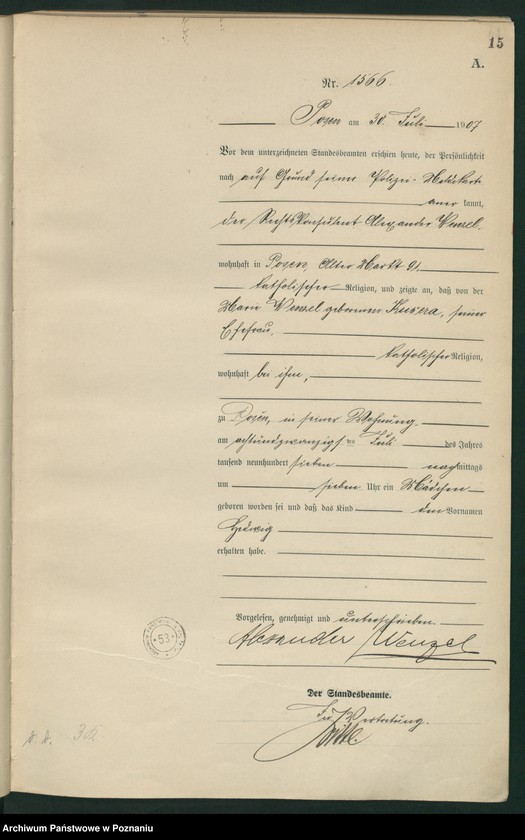 15
A.
Nr. 1566.
Posen am 30. Juli 1907
Vor dem unterzeichneten Standesbeamten erschien heute, der Persönlichkeit
nach auf Grund seiner Polizei-
kannt,
der Rechtskonsulent Alexander Wenzel.
wohnhaft in Posen, Alter Markt 91.
katholischer Religion, und zeigte an, daß von der
Marie Wenzel geborenen Kucera, seiner
Ehefrau,
katholischer Religion,
wohnhaft bei ihm,
zu Posen, in seiner Wohnung
am achtundzwanzigsten Juli des Jahres
tausend neunhundert sieben nachmittags
um sieben Uhr ein Mädchen
geboren worden sei und daß das Kind den Vornamen
Hedwig
erhalten habe.
Vorgelesen, genehmigt und unterschrieben.
Alexander Wenzel
Der Standesbeamte.
In Vertretung.
53
Archiwum Państwowe w Poznaniu